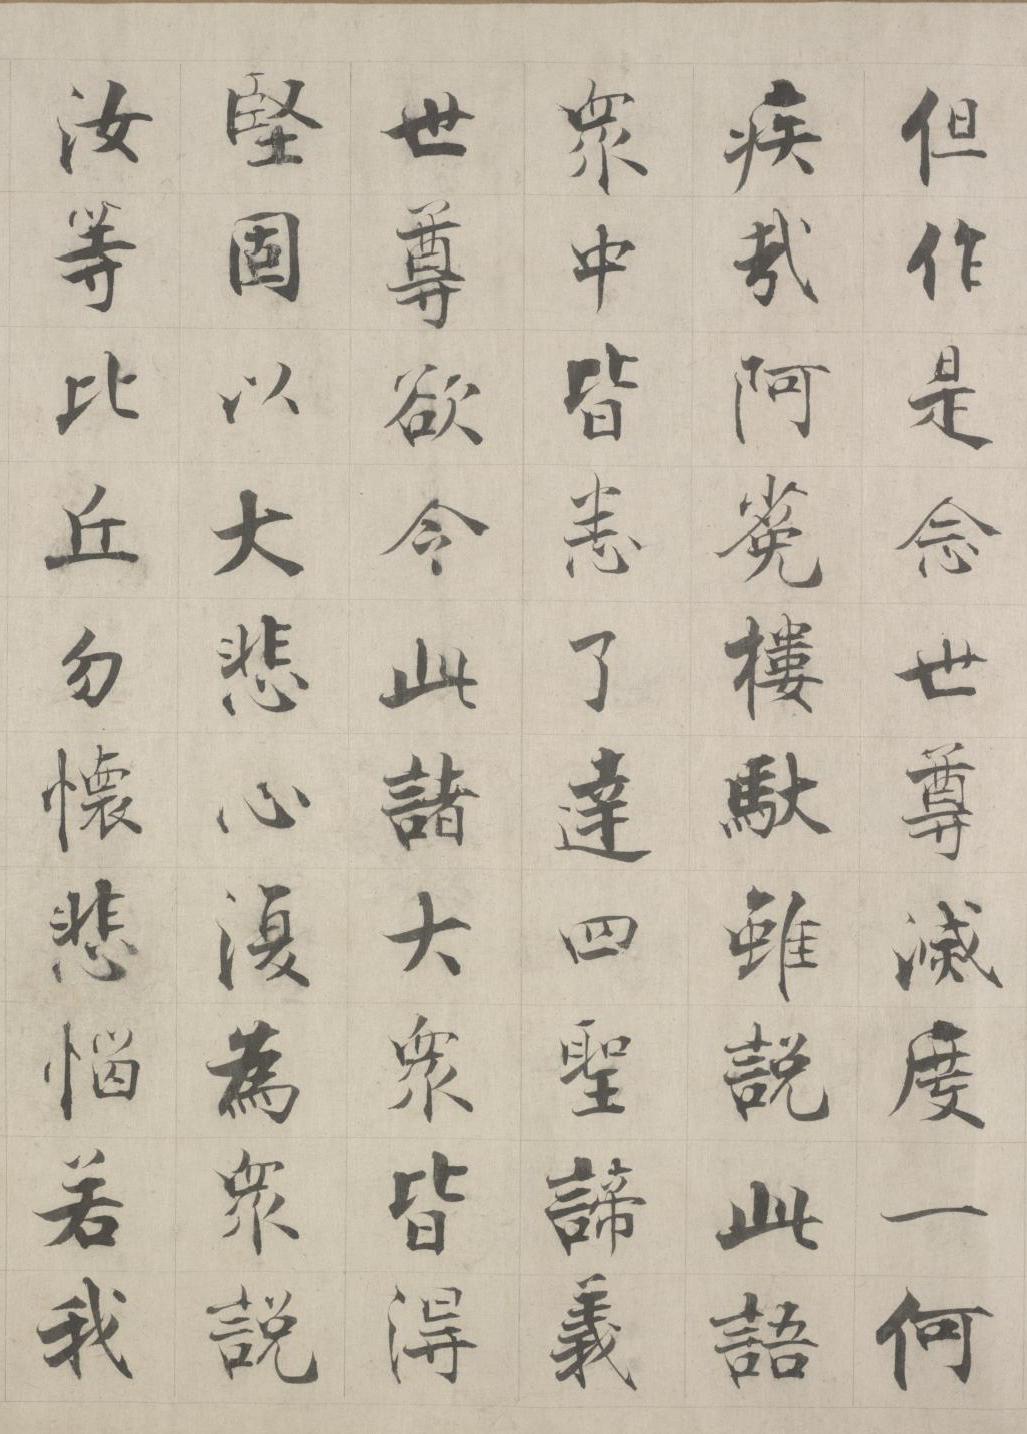 但作是念世尊滅度一何
疾哉阿㝹樓馱雖説此語
衆中皆悉了達四聖諦義
世尊欲令此諸大衆皆得
堅固以大悲心復為衆説
汝等比丘勿懷悲惱若我